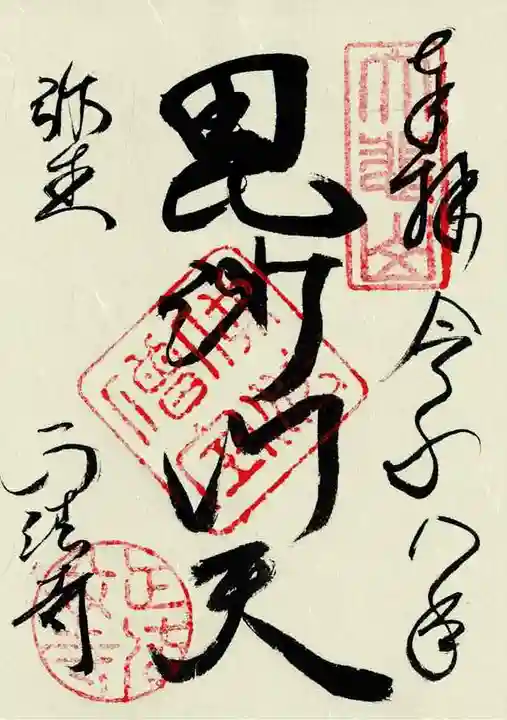 奉拝 令和八年
毘沙門天
弥生
正法寺